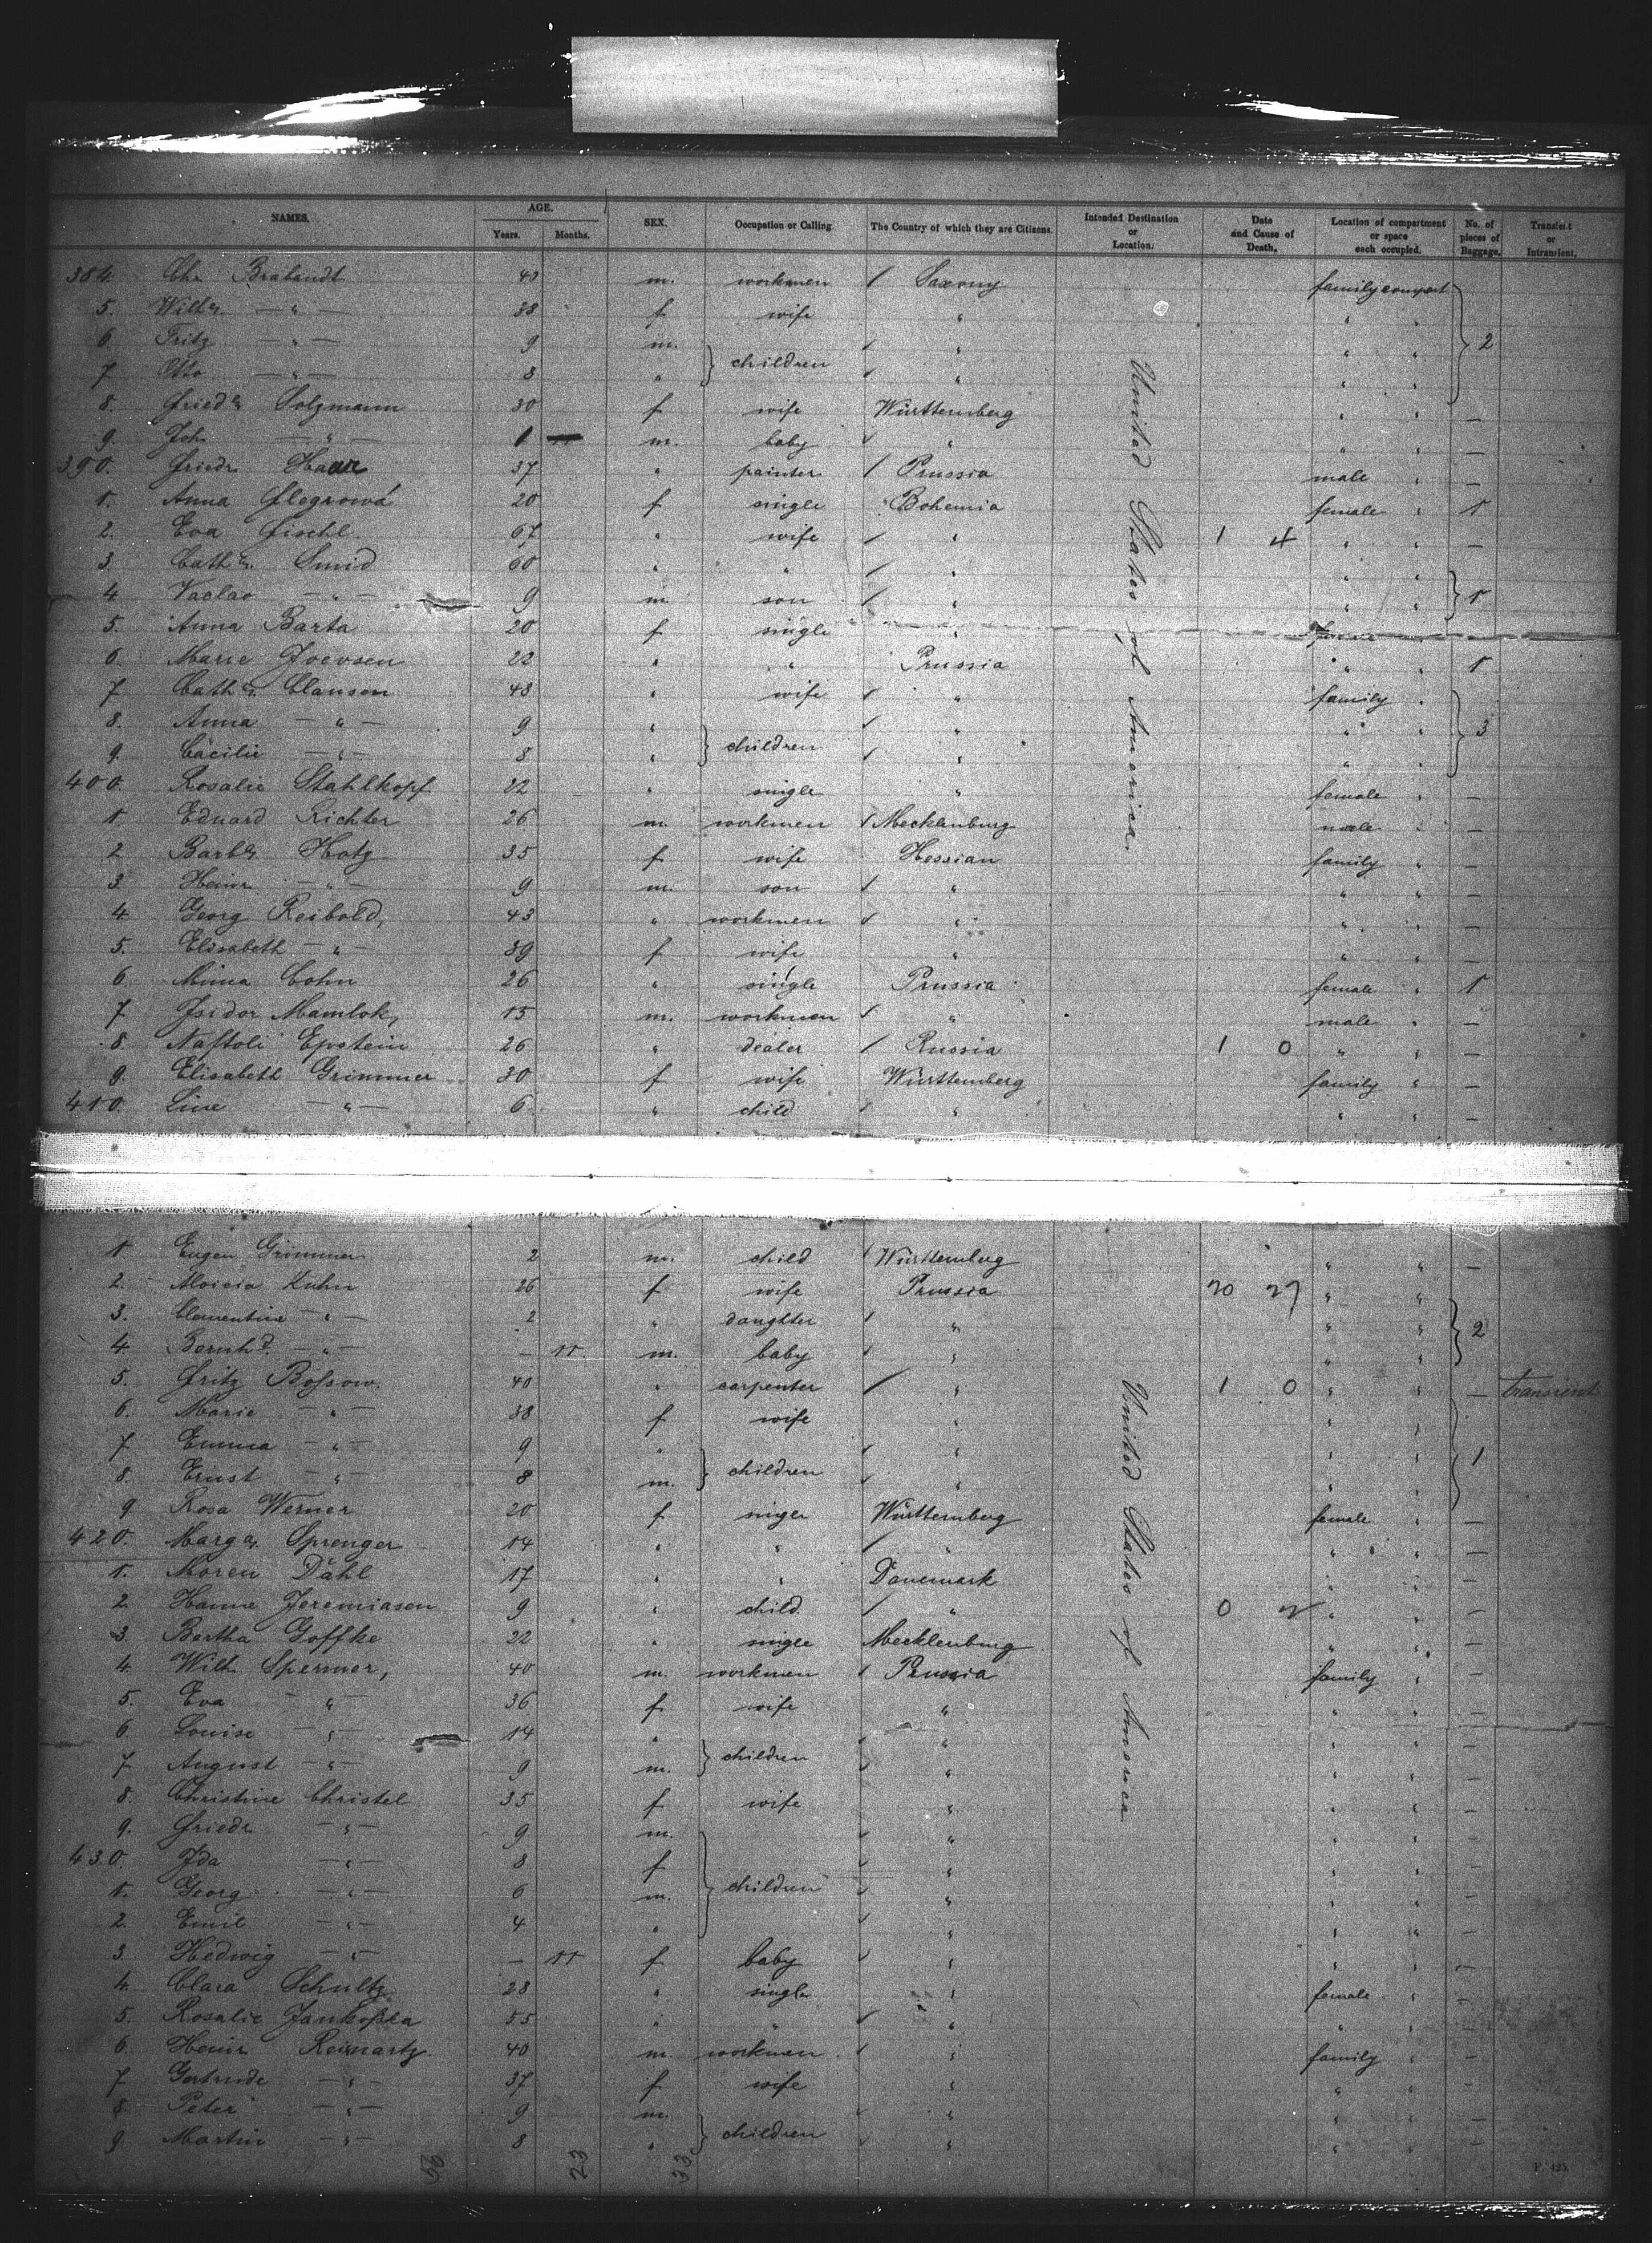 NAMES. AGE. Years. Months. SEX. Occupation or Calling. The Country of which they are Citizens. Intended Destination or Location. Date and Cause of Death. Location of compartment or space each occupied. No. of pieces of Baggage. Transient or Intransient.
384. Chr. Brabandt 43 m. workmen / Saxony family compart
5. Wilhe. — " — 38 f wife " " "
6. Fritz — " — 9 m. ✓ " " " 2
7. Otto — " — 8 " } children ✓ " " "
8. Friedke. Solzmann 30 f wife Württemberg " " —
9. Joh. — " — 1 m. baby ✓ " " " —
390. Friedr. Haar 37 " painter / Prussia male " —
1. Anna Flegrowá 20 f single Bohemia female " 1
2. Eva Fischl 67 " wife / " 1 4 " " —
3. Cathe. Smid 60 " " / " " "
4. Vaclav — " — 9 m. son / " " " } 1
5. Anna Barta 20 f single "
6. Marie Joevsen 22 " " Prussia " " 1
7. Cathe. Clausen 48 " wife ✓ " family "
8. Anna — " — 9 " ✓ " " " 3
9. Cäcilie — " — 8 " } children ✓ " " "
400. Rosalie Stahlkopf 22 " single " female " —
1. Eduard Richter 26 m. workmen / Mecklenburg male " —
2. Barbe. Hotz 35 f wife Hessian family " —
3. Heinr. — " — 9 m. son ✓ " " " —
4. Georg Reibold, 43 " workmen ✓ " " " —
5. Elisabeth — " 39 f wife " " " —
6. Mina Cohn 26 " single Prussia female " 1
7. Isidor Mamlok, 15 m. workmen ✓ " male " —
8. Naftoli Epstein 26 " dealer / Russia 1 0 " " —
9. Elisabeth Grimmer 30 f wife Württemberg family " —
410. Line — " — 6 " child ✓ " " " —
United States of America.
1. Eugen Grimmer 2 m. child / Württemberg " " —
2. Aloisia Kuhn 26 f wife Prussia 20 27 " "
3. Clementine — " — 2 " daughter ✓ " " " } 2
4. Bernhd. — " — — 11 m. baby ✓ " " "
5. Fritz Boßow 40 " carpenter / " 1 0 " " — transient
6. Marie — " — 38 f wife " " "
7. Emma — " — 9 " ✓ " " " 1
8. Ernst — " 8 m. } children ✓ " " "
9. Rosa Werner 20 f single Württemberg female " —
420. Marge. Sprenger 14 " " / " " " —
1. Maren Dahl 17 " " Danemark " " —
2. Hanne Jeremiasen 9 " child / " 0 2 " " —
3. Bertha Goffke 22 " single Mecklenburg " " —
4. Wilh. Spermer, 40 m. workmen / Prussia family " —
5. Eva — " 36 f wife " " " —
6. Louise — " — 14 " ✓ " " " —
7. August — " — 9 m. } children ✓ " " " —
8. Christine Christel 35 f wife " " " —
9. Friedr. — " — 9 m. ✓ " " " —
430. Ida — " — 8 f ✓ " " " —
1. Georg — " — 6 m. } children ✓ " " " —
2. Emil — " — 4 " ✓ " " " —
3. Hedwig — " — — 11 f baby ✓ " " " —
4. Clara Schultz 28 " single " female " —
5. Rosalie Jankoßka 55 " " ✓ " " " —
6. Heinr. Reinartz 40 m. workmen ✓ " family " —
7. Gertrude — " — 37 f wife " " " —
8. Peter — " — 9 m. ✓ " " " —
9. Martin — " — 8 " } children ✓ " " " —
United States of America
56 23 33
F. 425.